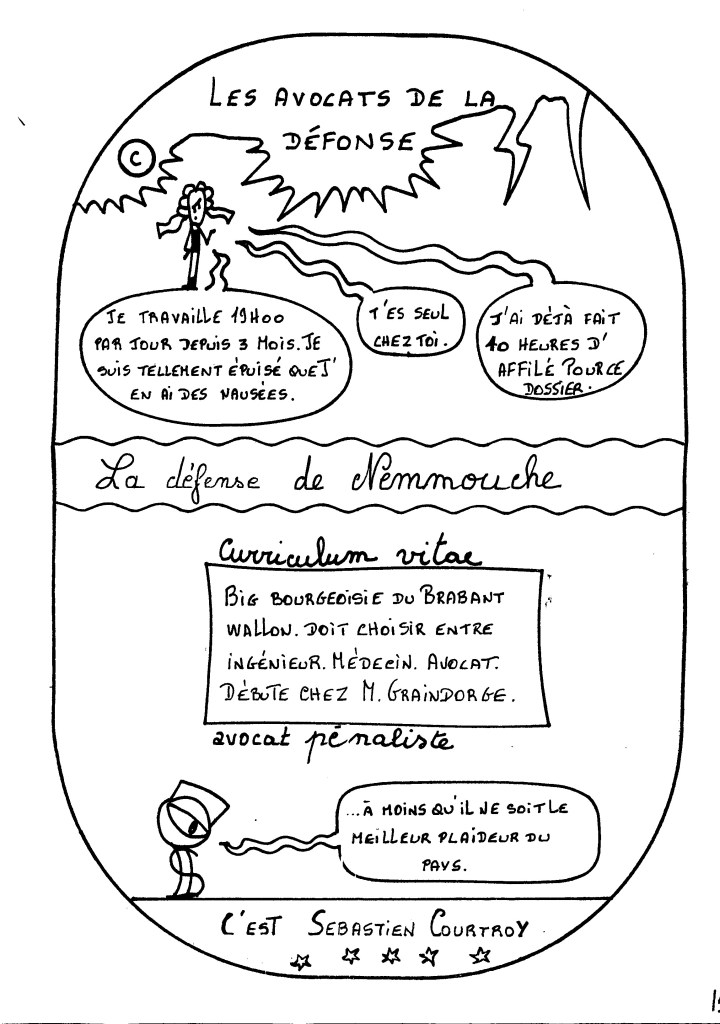 LES AVOCATS DE LA
DÉFONSE
C
JE TRAVAILLE 19H00
PAR JOUR DEPUIS 3 MOIS. JE
SUIS TELLEMENT ÉPUISÉ QUE J'
EN AI DES NAUSÉES.
T'ES SEUL
CHEZ TOI.
J'AI DÉJÀ FAIT
40 HEURES D'
AFFILÉ POUR CE
DOSSIER.
La défense de Nemmouche
Curriculum vitae
BIG BOURGEOISIE DU BRABANT
WALLON. DOIT CHOISIR ENTRE
INGÉNIEUR. MÉDECIN. AVOCAT.
DÉBUTE CHEZ M. GRAINDORGE.
avocat pénaliste
...À MOINS QU'IL NE SOIT LE
MEILLEUR PLAIDEUR DU
PAYS.
C'EST SEBASTIEN COURTROY